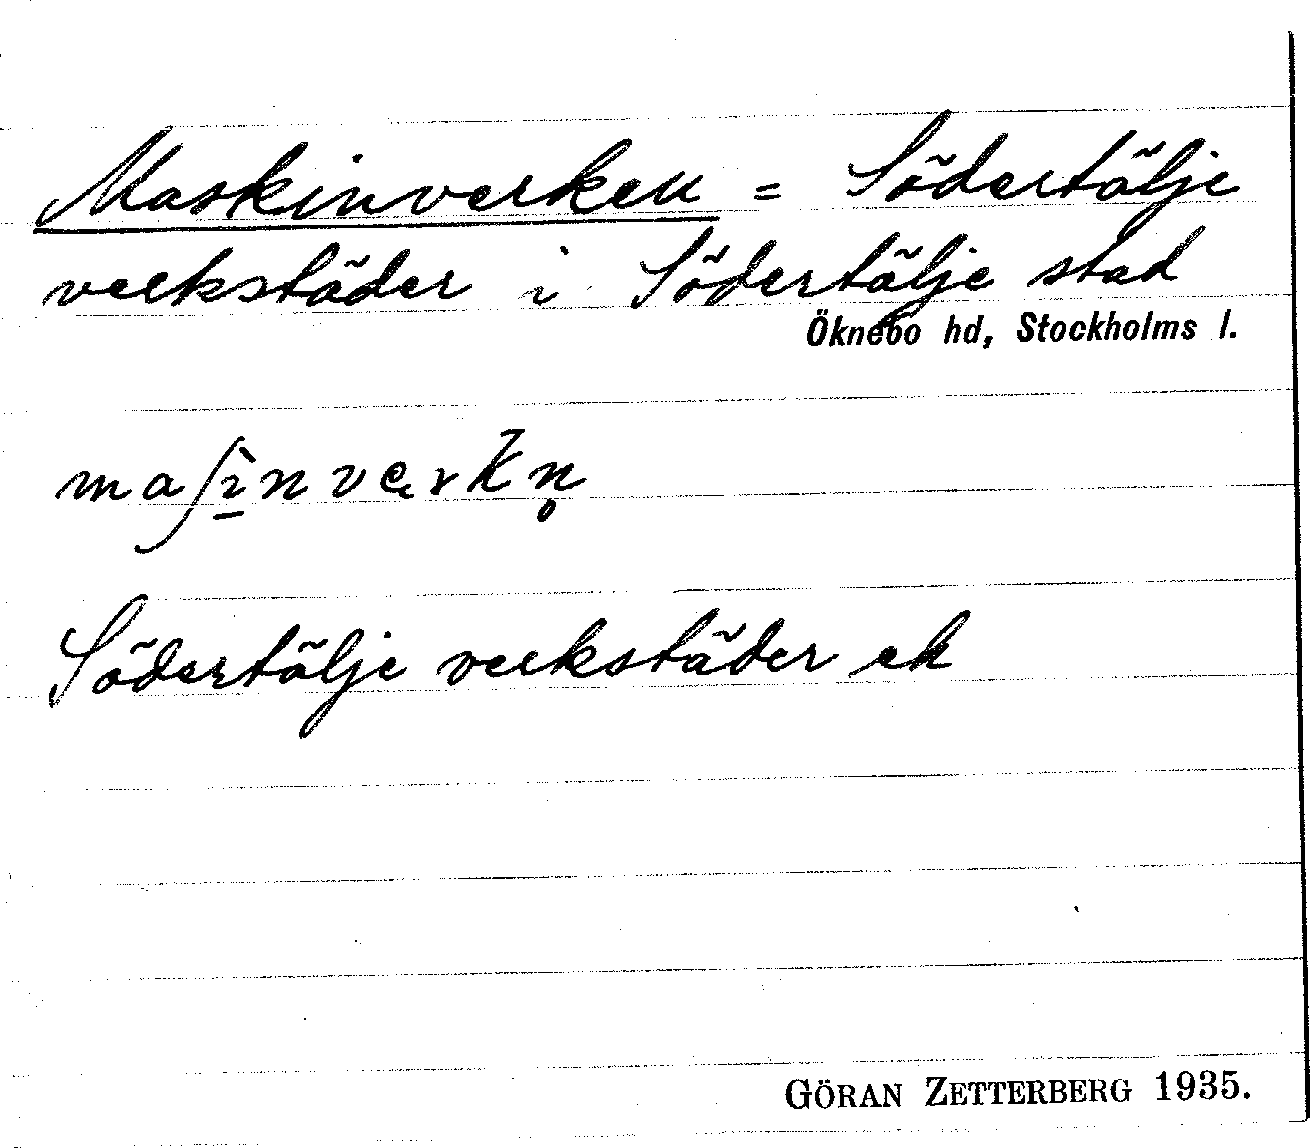 Maskinverken = Södertälje
verkstäder i Södertälje stad
Öknebo hd, Stockholms l.
maʃì̠nvęrkn̥
Södertälje verkstäder ek
GÖRAN ZETTERBERG 1935.